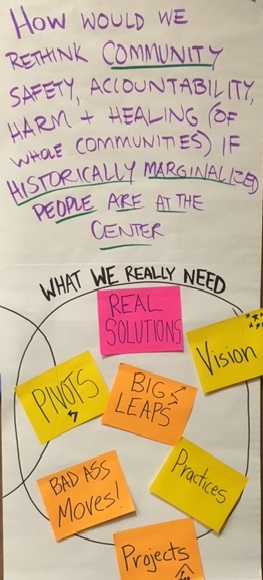 HOW WOULD WE
RETHINK COMMUNITY
SAFETY, ACCOUNTABILITY,
HARM + HEALING (OF
WHOLE COMMUNITIES) IF
HISTORICALLY MARGINALIZED
PEOPLE ARE AT THE
CENTER
WHAT WE REALLY NEED
REAL
SOLUTIONS
Vision
PIVOTS
BIG
LEAPS
BAD ASS
Moves!
Practices
Projects